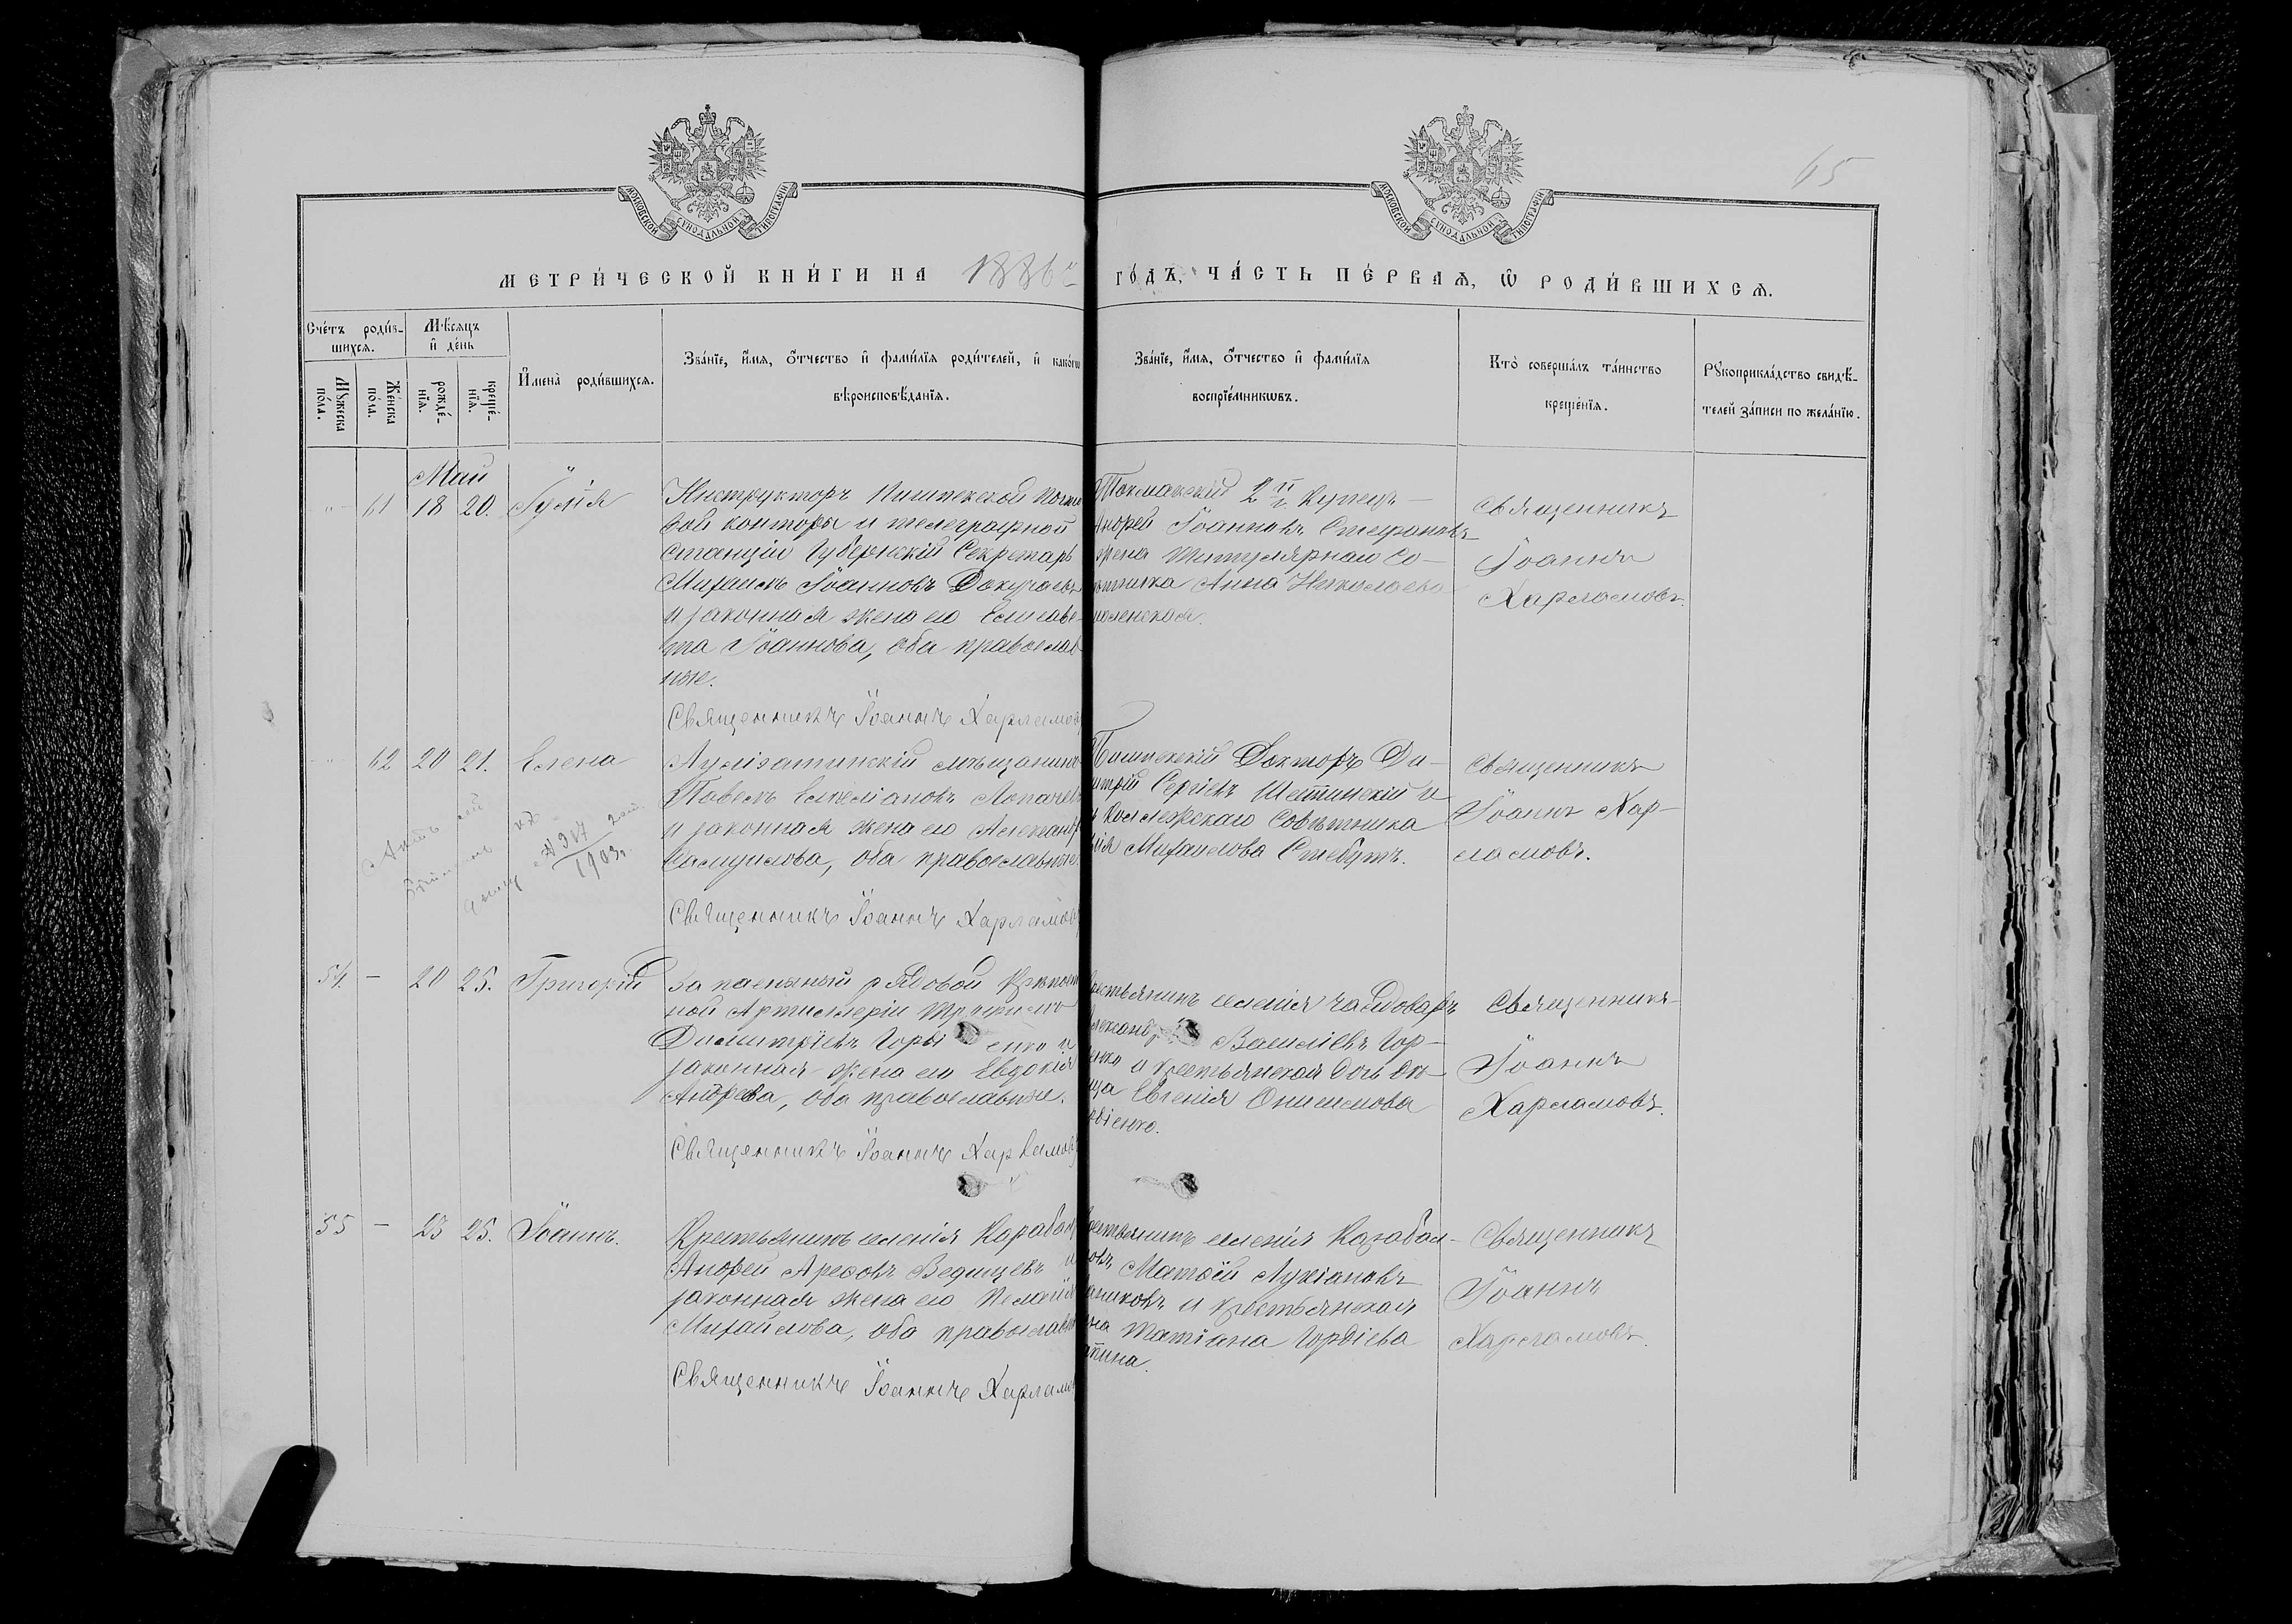 65
МОСКОВСКОЙ СѴНОДАЛЬНОЙ ТИПОГРАФІИ
МОСКОВСКОЙ СѴНОДАЛЬНОЙ ТИПОГРАФІИ
МЕТРИ́ЧЕСКОЙ КНИ́ГИ НА 1886 ГО́ДЪ, ЧА́СТЬ ПЕ́РВАѦ, Ѡ РОДИ́ВШИХСѦ.
Сче́тъ роди́в-
шихсѧ.
Мꙋ́жеска по́ла.
Же́нска по́ла.
Мѣ́сѧцъ
и҆ де́нь
рожде́-
нїѧ.
креще́-
нїѧ.
И҆мена̀ роди́вшихсѧ.
Зва́нїе, и҆́мѧ, ѻ҆́тчество и҆ фами́лїѧ роди́телей, и҆ како́гѡ
вѣроисповѣ́данїѧ.
Зва́нїе, и҆́мѧ, ѻ҆́тчество и҆ фами́лїѧ
воспрїе́мникѡвъ.
Кто̀ соверша́лъ та́инство
креще́нїѧ.
Рꙋкоприкла́дство свидѣ́-
телей за́писи по жела́нїю.
Май
" 61 18 20. Іулія
Инструкторъ Пишпекской почто
вой конторы и телеграфной
станціи Губернскій Секретарь
Михаилъ Іоанновъ Докучаевъ
и законная жена его Елисаве-
та Іоаннова, оба православ
ные.
Священникъ Іоаннъ Харламов
Токмакский 2й г. Купецъ
Андрей Іоанновъ Стефановъ
жена Титулярнаго Со-
вѣтника Анна Николаева
Священникъ
Іоаннъ
Харламовъ.
" 62 20 21. Елена
Ауліэатинскій мѣщанинъ
Павелъ Емеліановъ Лопачевъ
и законная жена его Александр
Самуилова, оба православные
Священникъ Іоаннъ Харламов
Пишпекскій Докторъ Ди-
митрій Сергіевъ и
Коллежскаго Совѣтника
Михаилова Стебутъ.
Священникъ
Іоаннъ Хар-
ламовъ.
1903г.
54 — 20 25. Григорій
Запасный рядовой Крѣпост
ной Артиллеріи Трофимъ
Димитріевъ и
законная жена его Евдокія
Андреева, оба православные.
Священникъ Іоаннъ Харламов
крестьянинъ селенія Чалдоваръ
Василіевъ Гор-
и крестьянская дочь
Евгенія Онисимова
Священникъ
Іоаннъ
Харламовъ.
55 — 23 25. Іоаннъ.
Крестьянинъ селенія Карабал
Андрей Арефовъ Ведищевъ и
законная жена его Пелагія
Михайлова, оба православн
Священникъ Іоаннъ Харламо
крестьянинъ селенія Карабал-
Матѳій Лукіановъ
и крестьянская
жена Татіана Гордіева
Священникъ
Іоаннъ
Харламовъ.